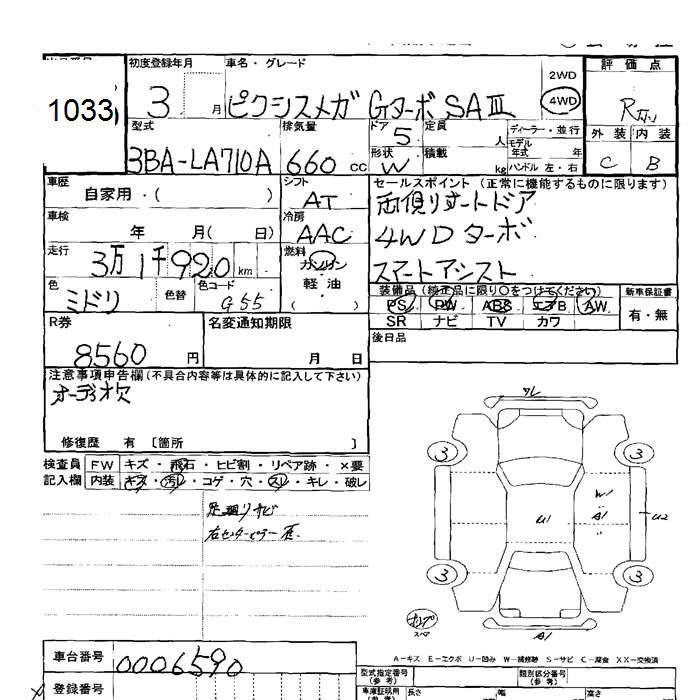 初度登録年月 車名・グレード 2WD 評価点
1033 3 月 ピクシスメガ GターボSAⅢ 4WD
型式 排気量 ドア 5 定員 人 ディーラー・並行 外装 内装
3BA-LA710A 660 cc 形状 W 積載 kg モデル年式 年 ハンドル 左・右 C B
車歴 シフト セールスポイント (正常に機能するものに限ります)
自家用・( ) AT 両側リオートドア
車検 年 月( 日) 冷房 AAC 4WDターボ
走行 3万1千920 km 燃料 ガソリン 軽油 ( ) スマートアシスト
色 ミドリ 色替 色コード G55
装備品 (純正品に限り○をつけてください) 新車保証書
PS PW ABS エアB AW 有・無
SR ナビ TV カワ
R券 名変通知期限 後日品
8560 円 月 日
注意事項申告欄(不具合内容等は具体的に記入して下さい)
オーディオ欠
修復歴 有 〔箇所 〕
検査員 FW キズ・飛石・ヒビ割・リペア跡・×要
記入欄 内装 キズ・汚れ・コゲ・穴・スレ・キレ・破レ
足廻りサビ
右センターピラー歪
ワレ
3 3
W1
A1
U1 U2
3 3
スペア
A1
A-キズ E-エクボ U-凹み W-補修跡 S-サビ C-腐食 XX-交換済
車台番号 0006590
型式指定番号(参考) 類別区分番号(参考)
登録番号 車庫証明用(参考) 長さ 幅 高さ